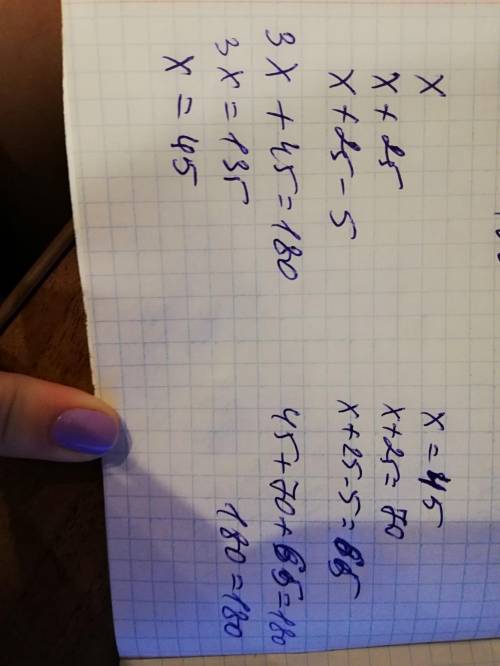 x
x + 25
x + 25 - 5
3x + 45 = 180
3x = 135
x = 45
x = 45
x + 25 = 70
x + 25 - 5 = 65
45 + 70 + 65 = 180
180 = 180